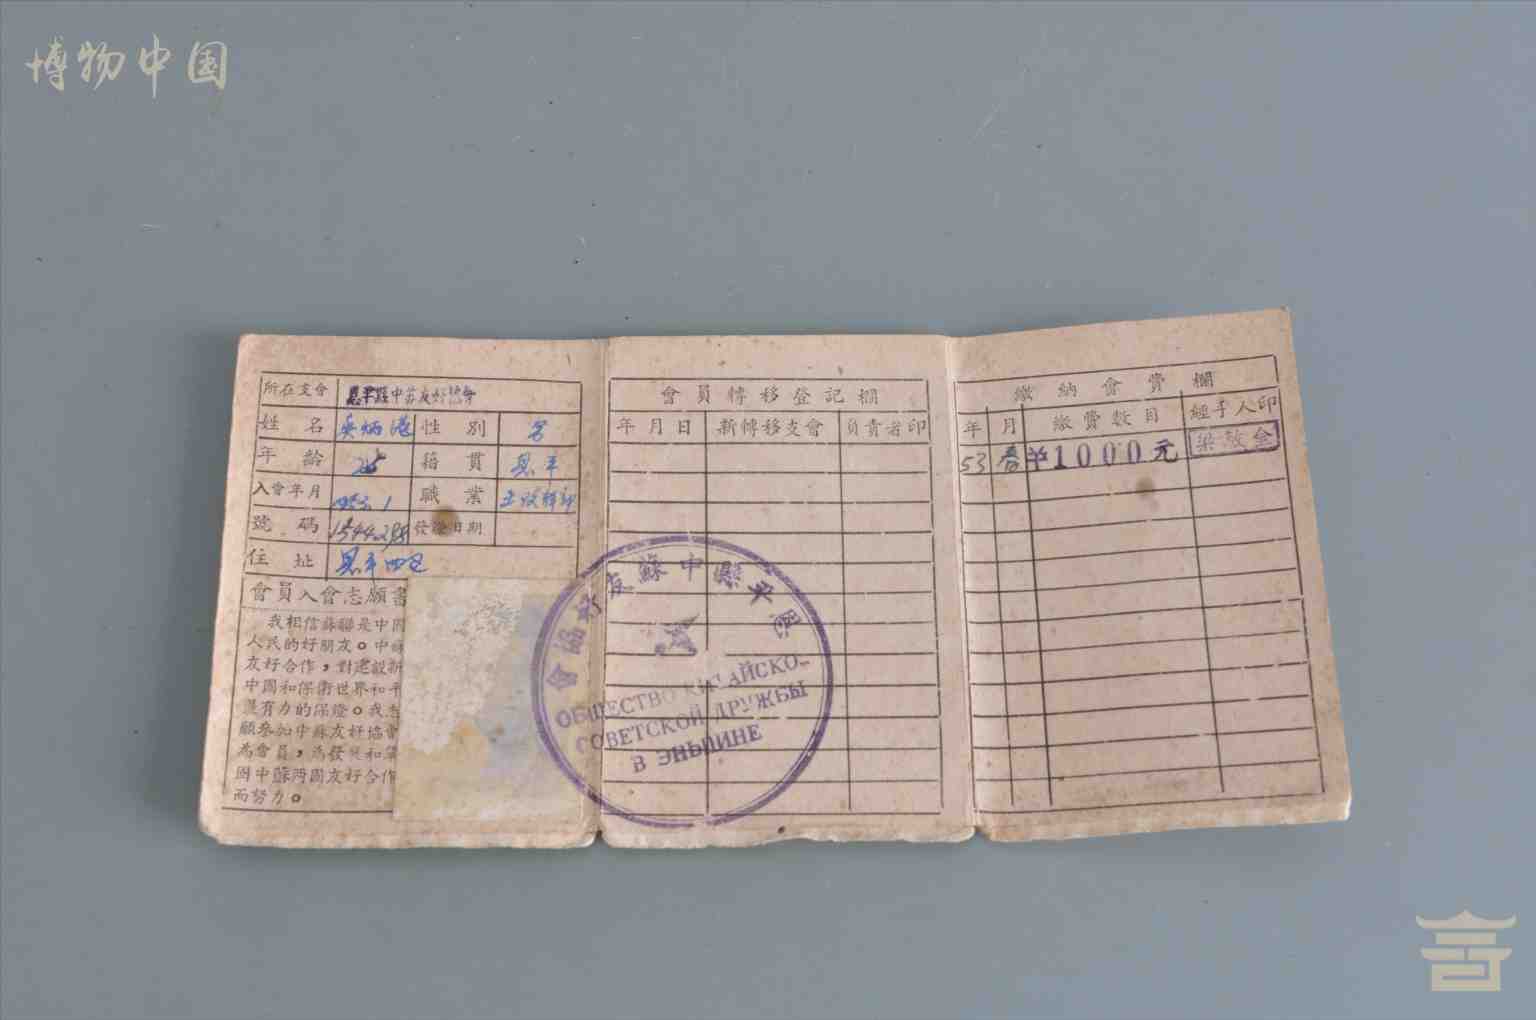 博物中国
所在支會 恩平縣中苏友好協會
姓名 吳炳港 性別 男
年齡 25 籍貫 恩平
入會年月 1953.1 職業
號碼 1544288 發證日期
住址 恩平四区
會員入會志願書
我相信蘇聯是中國
人民的好朋友。中蘇
友好合作,對建設新
中國和保衛世界和平
還有力的保證。我志
願參加中蘇友好協會
為會員,為發展和鞏
固中蘇两國友好合作
而努力。
會員轉移登記欄
年月日 新轉移支會 負責者印
恩平縣中蘇友好協會
ОБЩЕСТВО КИТАЙСКО-
СОВЕТСКОЙ ДРУЖБЫ
В ЭНЬПИНЕ
繳納會費欄
年 月 繳費數目 經手人印
53 春 ¥1000元 梁啟金